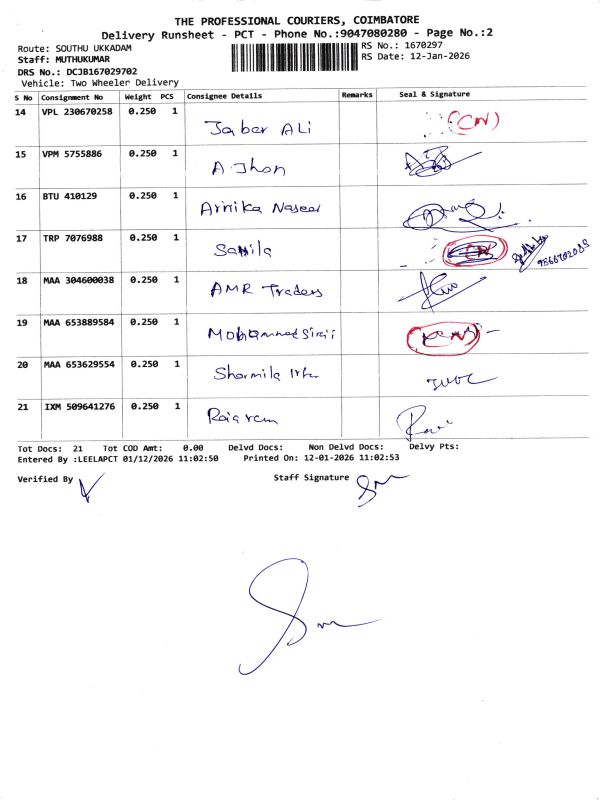 THE PROFESSIONAL COURIERS, COIMBATORE
Delivery Runsheet - PCT - Phone No.:9047080280 - Page No.:2
Route: SOUTHU UKKADAM
RS No.: 1670297
Staff: MUTHUKUMAR
RS Date: 12-Jan-2026
DRS No.: DCJB167029702
Vehicle: Two Wheeler Delivery
S No Consignment No Weight PCS Consignee Details Remarks Seal & Signature
14 VPL 230670258 0.250 1 Jaber ALi (CN)
15 VPM 5755886 0.250 1 A. Jhon
16 BTU 410129 0.250 1 Arnika Naseer
17 TRP 7076988 0.250 1 CN
18 MAA 304600038 0.250 1 AMR Traders
19 MAA 653889584 0.250 1
20 MAA 653629554 0.250 1 Sharmila
21 IXM 509641276 0.250 1
Tot Docs: 21 Tot COD Amt: 0.00 Delvd Docs: Non Delvd Docs: Delvy Pts:
Entered By :LEELAPCT 01/12/2026 11:02:50 Printed On: 12-01-2026 11:02:53
Verified By
Staff Signature